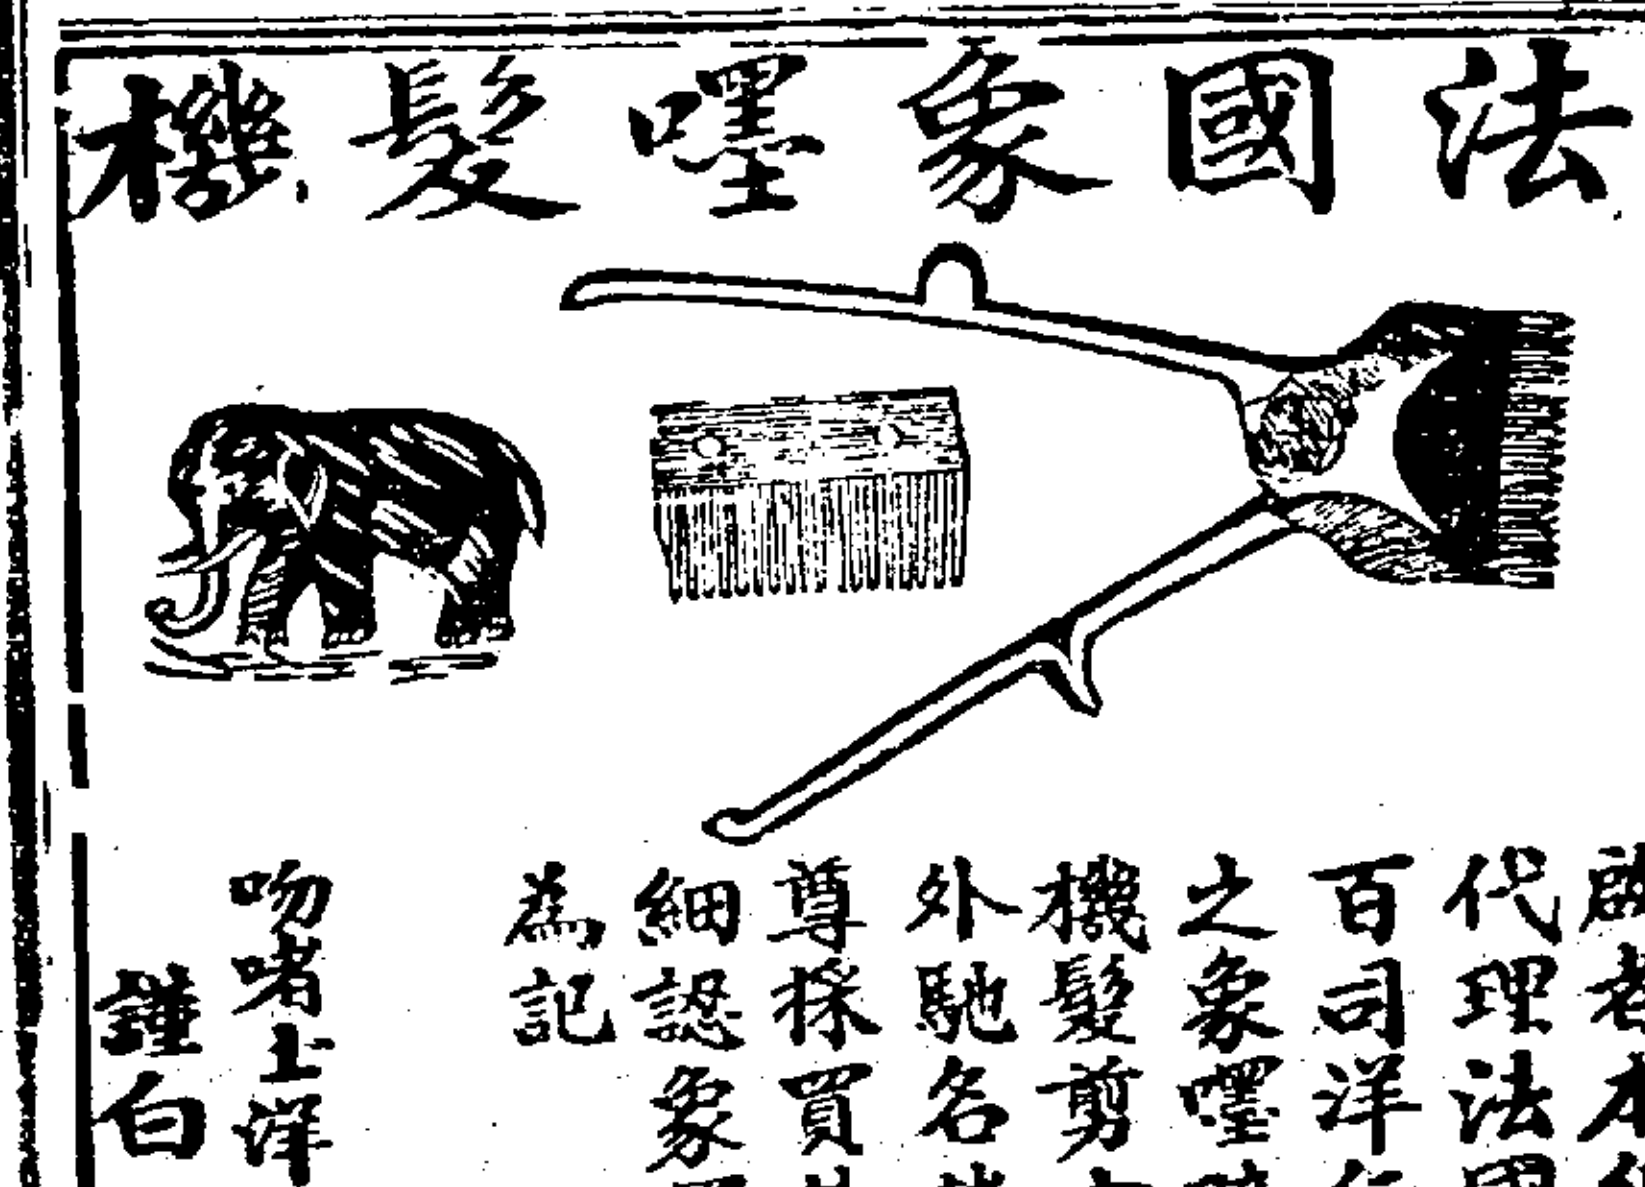 法國象嘿髮機
啟者本
代理法國
百司洋行
之象嘿
機髮剪
外馳名
尊採買
細認象嘿
為記
吻啫士洋
謹白